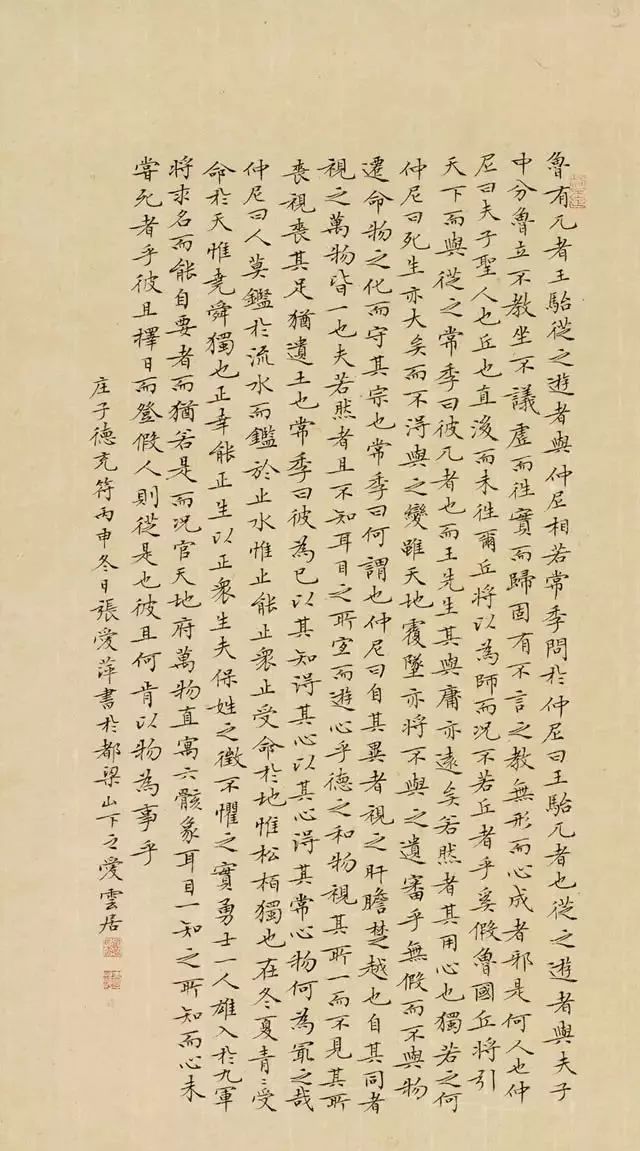 魯有兀者王駘從之遊者與仲尼相若常季問於仲尼曰王駘兀者也從之遊者與夫子
中分魯立不教坐不議虛而往實而歸固有不言之教無形而心成者邪是何人也仲
尼曰夫子聖人也丘也直後而未往爾丘將以為師而况不若丘者乎奚假魯國丘將引
天下而與從之常季曰彼兀者也而王先生其與庸亦遠矣若然者其用心也獨若之何
仲尼曰死生亦大矣而不得與之變雖天地覆墜亦將不與之遺審乎無假而不與物
遷命物之化而守其宗也常季曰何謂也仲尼曰自其異者視之肝膽楚越也自其同者
視之萬物皆一也夫若然者且不知耳目之所宜而遊心乎德之和物視其所一而不見其所
喪視喪其足猶遺土也常季曰彼為己以其知得其心以其心得其常心物何為冣之哉
仲尼曰人莫鑑於流水而鑑於止水惟止能止衆止受命於地惟松栢獨也在冬夏青〻受
命於天惟堯舜獨也正幸能正生以正衆生夫保姓之徵不懼之實勇士一人雄入於九軍
將求名而能自要者而猶若是而况官天地府萬物直寓六骸象耳目一知之所知而心未
嘗死者乎彼且擇日而登假人則從是也彼且何肯以物為事乎
庄子德充符丙申冬日張愛萍書於都梁山下之愛雲居